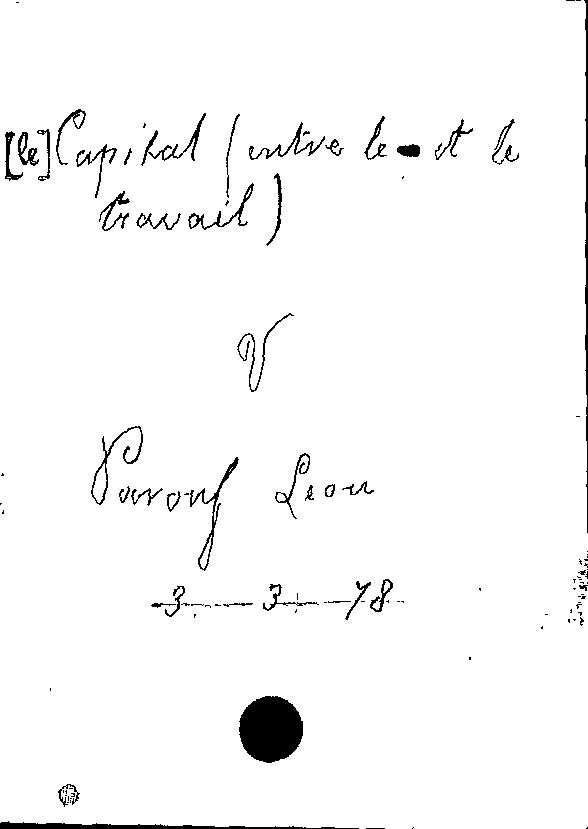 [le] Capital (entre le - et le
travail)
V
Léon
3 3 78